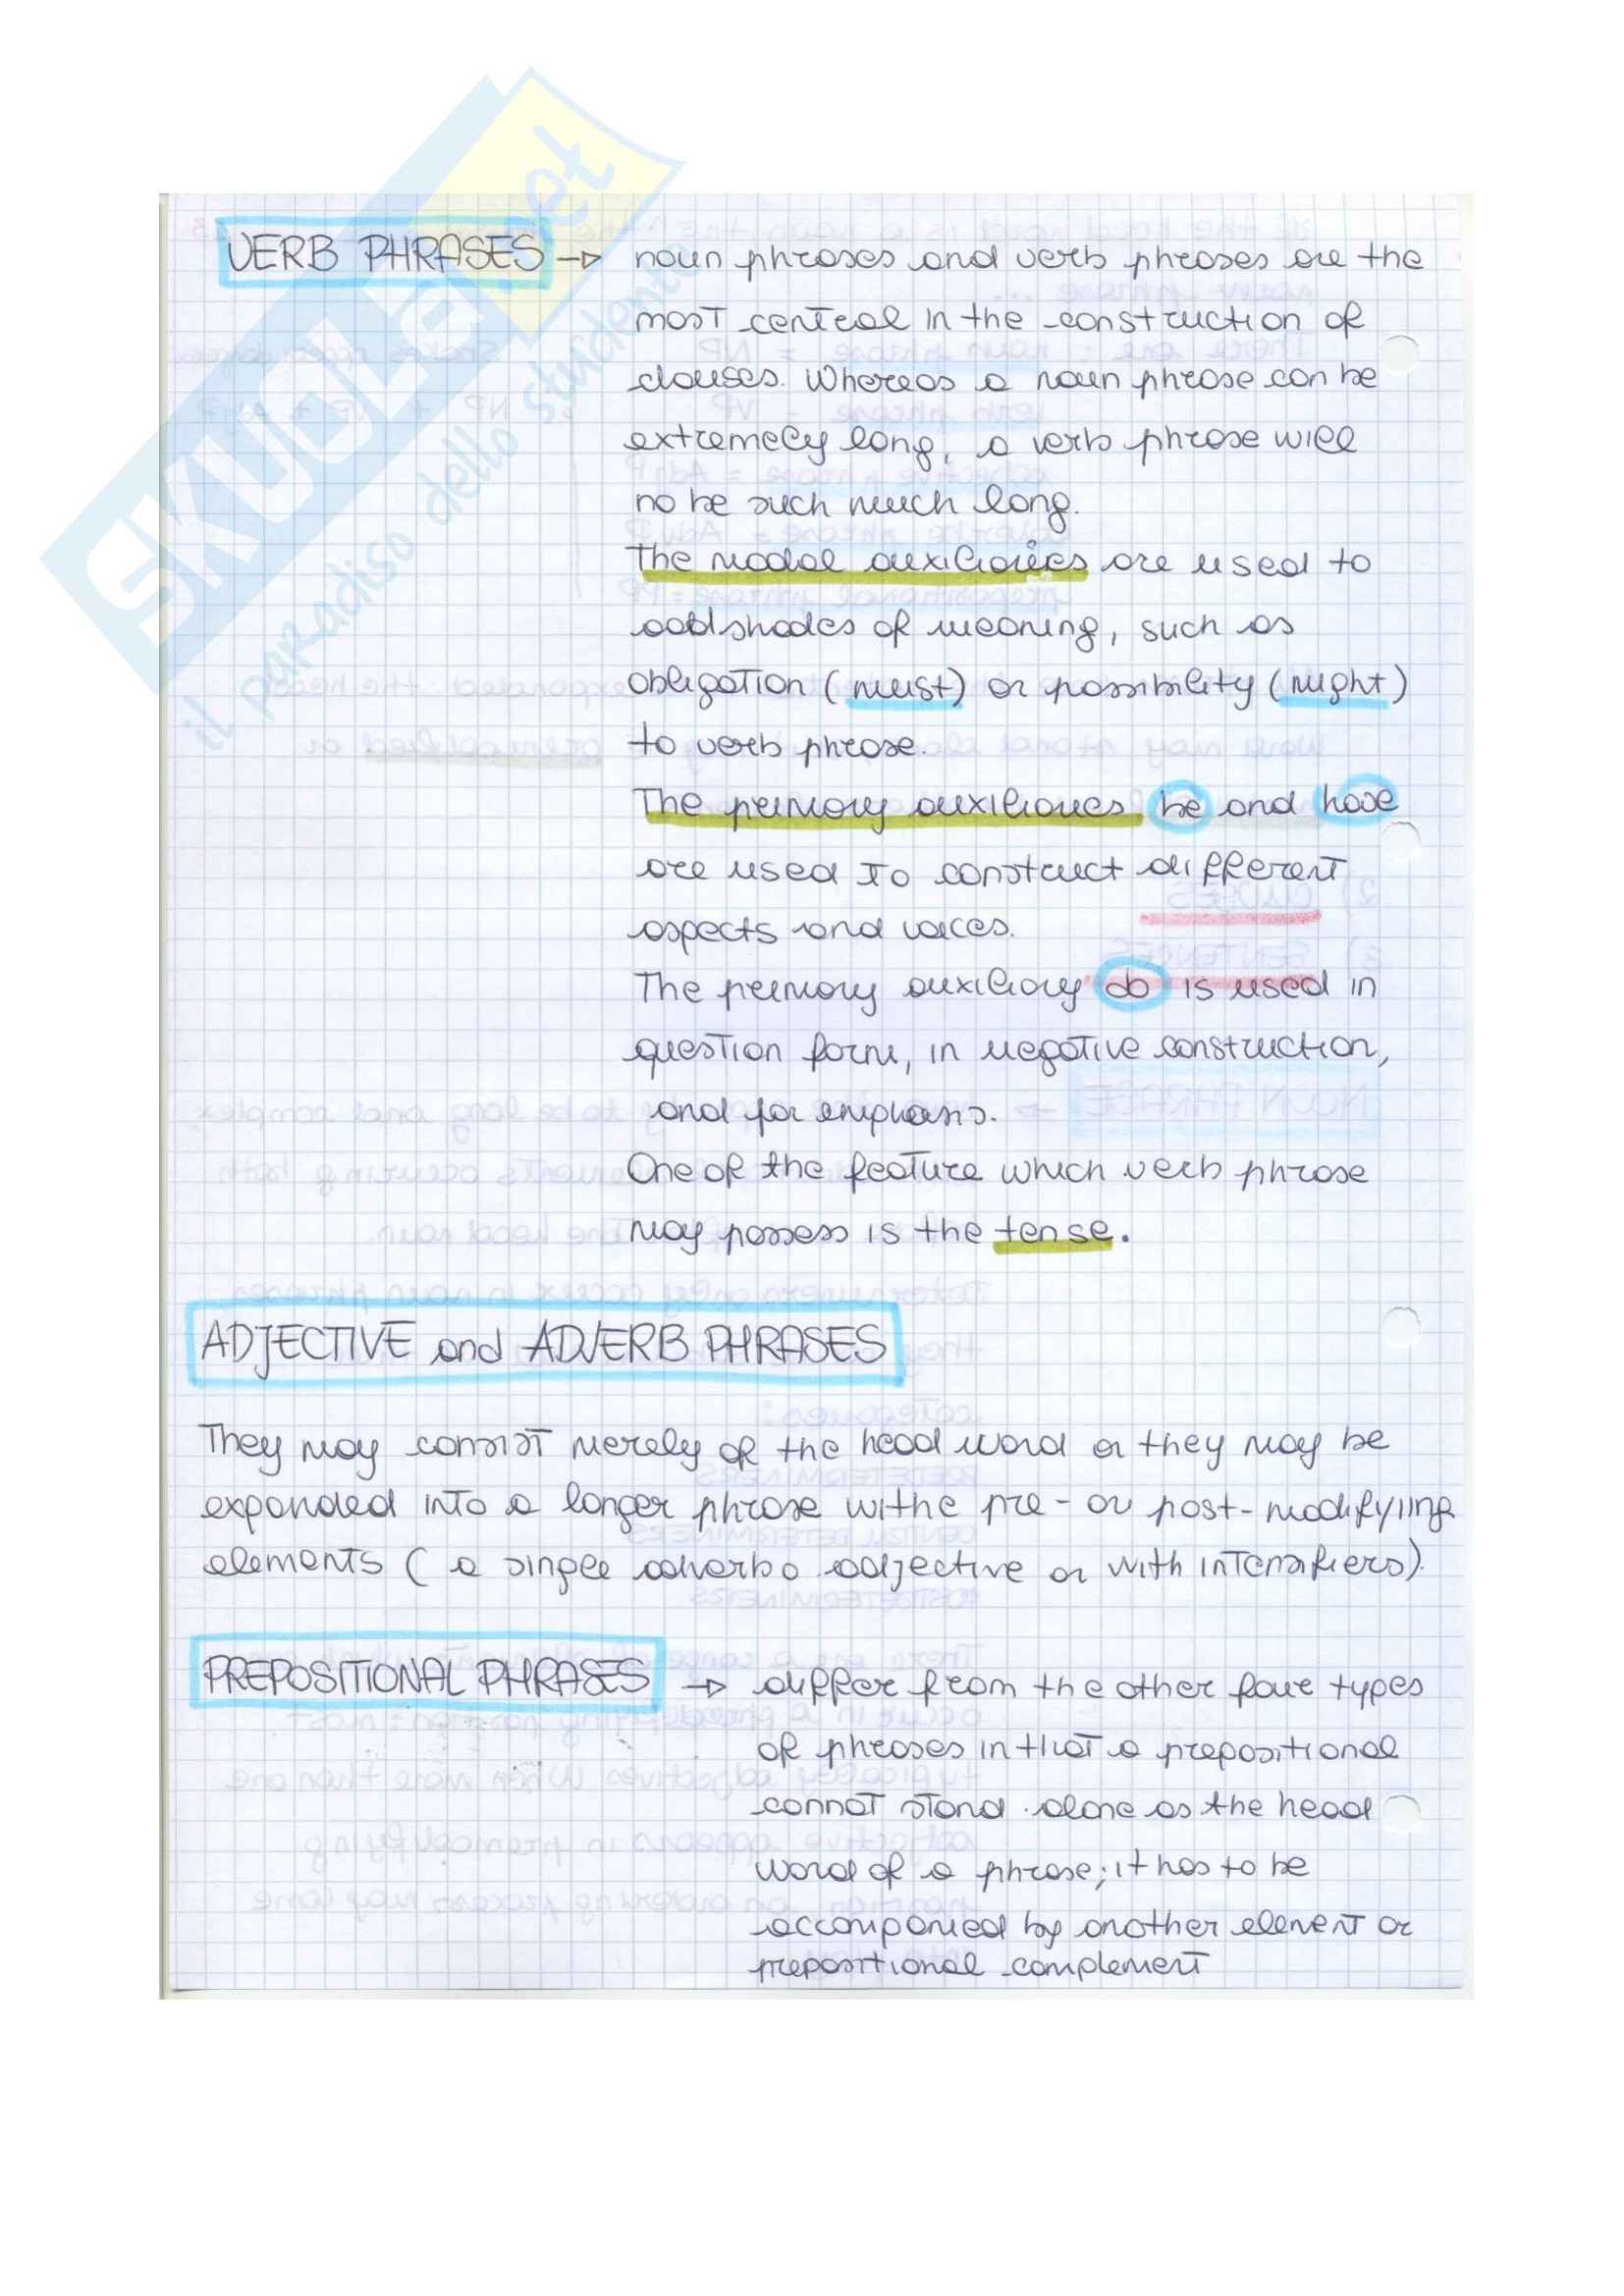 SKUOLa.net
il paradiso dello studente
VERB PHRASES → noun phrases and verb phrases are the
most central in the construction of
clauses. Whereas a noun phrase can be
extremely long, a verb phrase will
no be such much long.
The modal auxiliaries are used to
add shades of meaning, such as
obligation (must) or possibility (might)
to verb phrase.
The primary auxiliaries be and have
are used to construct different
aspects and voices.
The primary auxiliary do is used in
question form, in negative construction,
and for emphasis.
One of the feature which verb phrase
may possess is the tense.
ADJECTIVE and ADVERB PHRASES
They may consist merely of the head word or they may be
expanded into a longer phrase withe pre- or post-modifying
elements ( a single adverb o adjective or with intensifiers).
PREPOSITIONAL PHRASES → differ from the other four types
of phrases in that a prepositional
cannot stand alone as the head
word of a phrase; it has to be
accompanied by another element or
prepositional complement